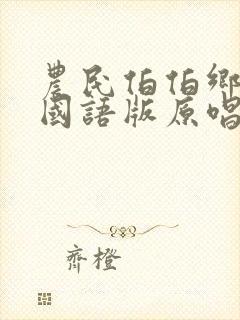 農民伯伯鄉
國語版原唱
齊橙